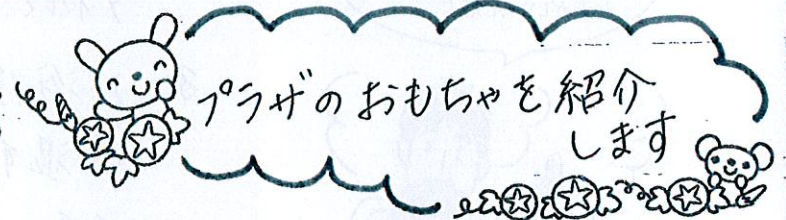 プラザのおもちゃを紹介
します